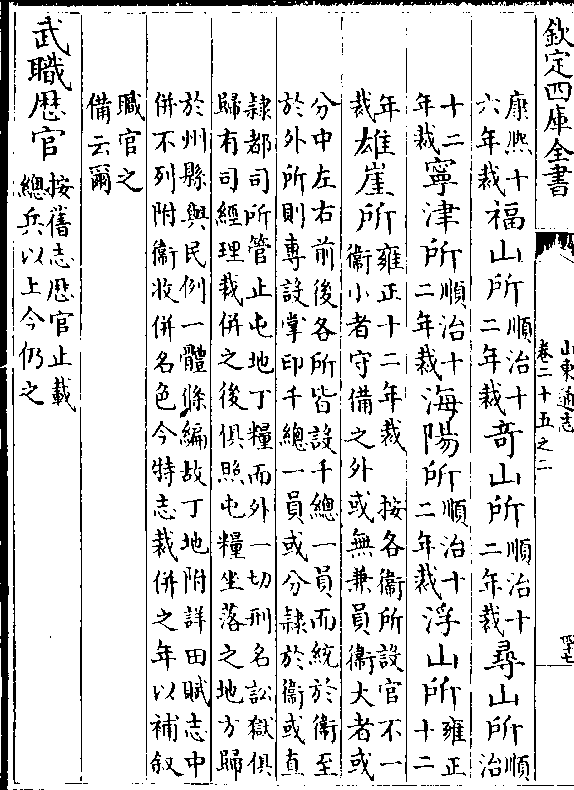 欽定四庫全書
山東通志
卷二十五之二
四十七
康熙十六年裁福山所順治十二年裁奇山所順治十二年裁尋山所順治
十二年裁寧津所順治十二年裁海陽所順治十二年裁浮山所雍正十二
年裁雄崖所雍正十二年裁 按各衛所設官不一衛小者守備之外或無兼員衛大者或
分中左右前後各所皆設千總一員而統於衛至
於外所則專設掌印千總一員或分隷於衛或直
隷都司所管止屯地丁糧而外一切刑名訟獄俱
歸有司經理裁併之後俱照屯糧坐落之地方歸
於州縣與民例一體條編故丁地附詳田賦志中
併不列附衛收併名色今特志裁併之年以補叙
職官之
備云爾
武職歷官按舊志歷官止載總兵以上今仍之